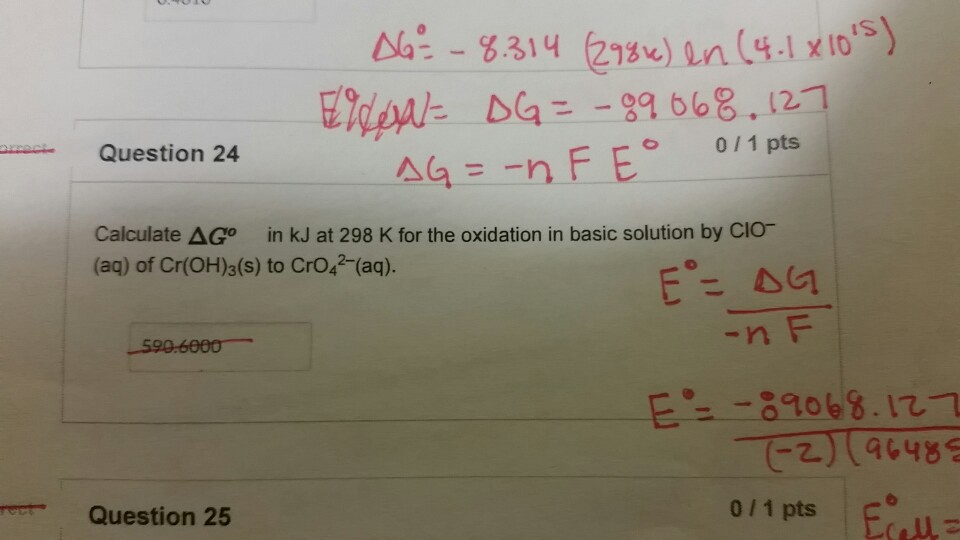 ΔG°= - 8.314 (298K) ln (4.1 x 10¹⁵)
ΔG = -89068.127
Question 24
0 / 1 pts
ΔG = -n F E°
Calculate ΔG° in kJ at 298 K for the oxidation in basic solution by ClO⁻
(aq) of Cr(OH)₃(s) to CrO₄²⁻(aq).
E° = ΔG
-n F
590.6000
E° = -89068.127
(-2) (96485
Question 25
0 / 1 pts
E°cell =